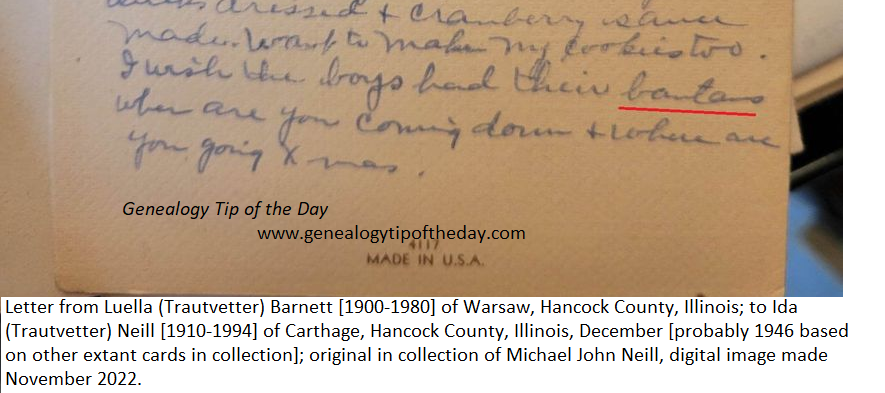 dressed + cranberry sauce
made. Want to make my cookies too.
I wish the boys had their bantans
when are you coming down + where are
you going X mas.
Genealogy Tip of the Day
www.genealogytipoftheday.com
4117
MADE IN U.S.A.
Letter from Luella (Trautvetter) Barnett [1900-1980] of Warsaw, Hancock County, Illinois; to Ida
(Trautvetter) Neill [1910-1994] of Carthage, Hancock County, Illinois, December [probably 1946 based
on other extant cards in collection]; original in collection of Michael John Neill, digital image made
November 2022.